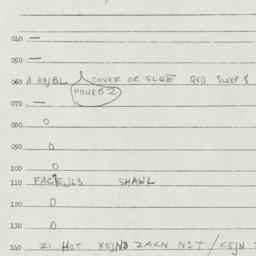 040 —
050 —
060 A HAJBL COVER OR SLEE QED SLEEP &
HOURS 2
070 —
080 0
090 0
100 0
110 FACEJL3 SHAWL
120 0
130 0
140 21 HOT KEJN3 2AXN N2T / KEJN